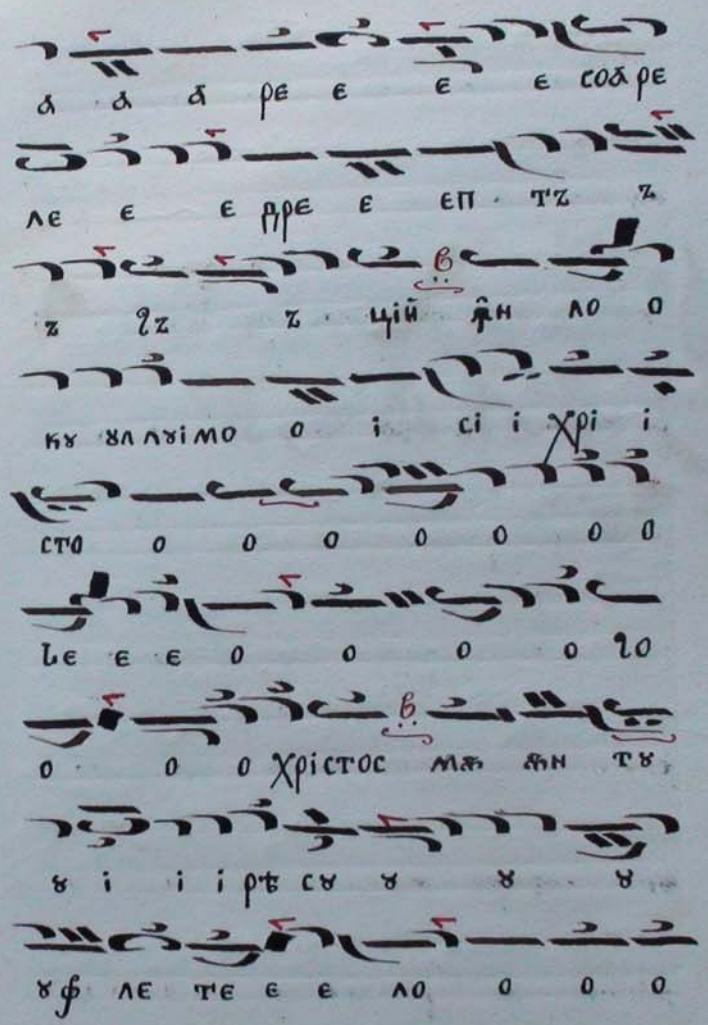 ꙋ ꙋ ꙋ ре е е е соꙋ ре
ле е е дре е еп тꙁ ꙁ
ꙁ чꙁ ꙁ цїй ꙟн ло о
кꙋ ꙋл лꙋі мо о і сі і Хрі і
сто о о о о о о о
ье е е о о о о чо
о о о Хрістос мѫ ѫн тꙋ
ꙋ і і і рѣ сꙋ ꙋ ꙋ ꙋ
ꙋф ле те е е ло о о о